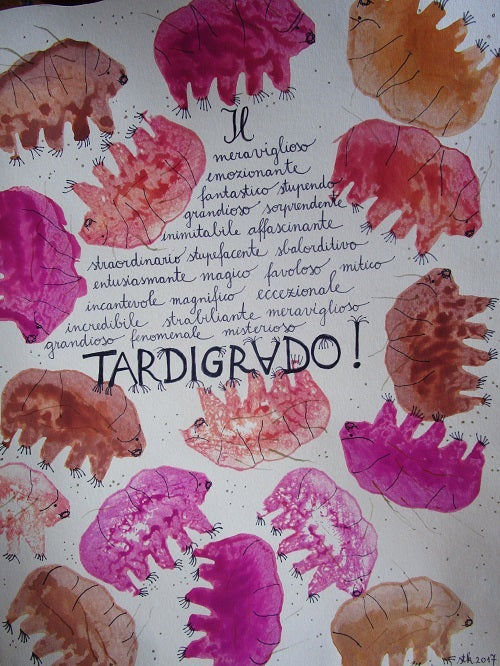 Il
meraviglioso
emozionante
fantastico stupendo
grandioso sorprendente
inimitabile affascinante
straordinario stupefacente sbalorditivo
entusiasmante magico favoloso mitico
incantevole magnifico eccezionale
incredibile strabiliante meraviglioso
grandioso fenomenale misterioso
TARDIGRADO!
2017